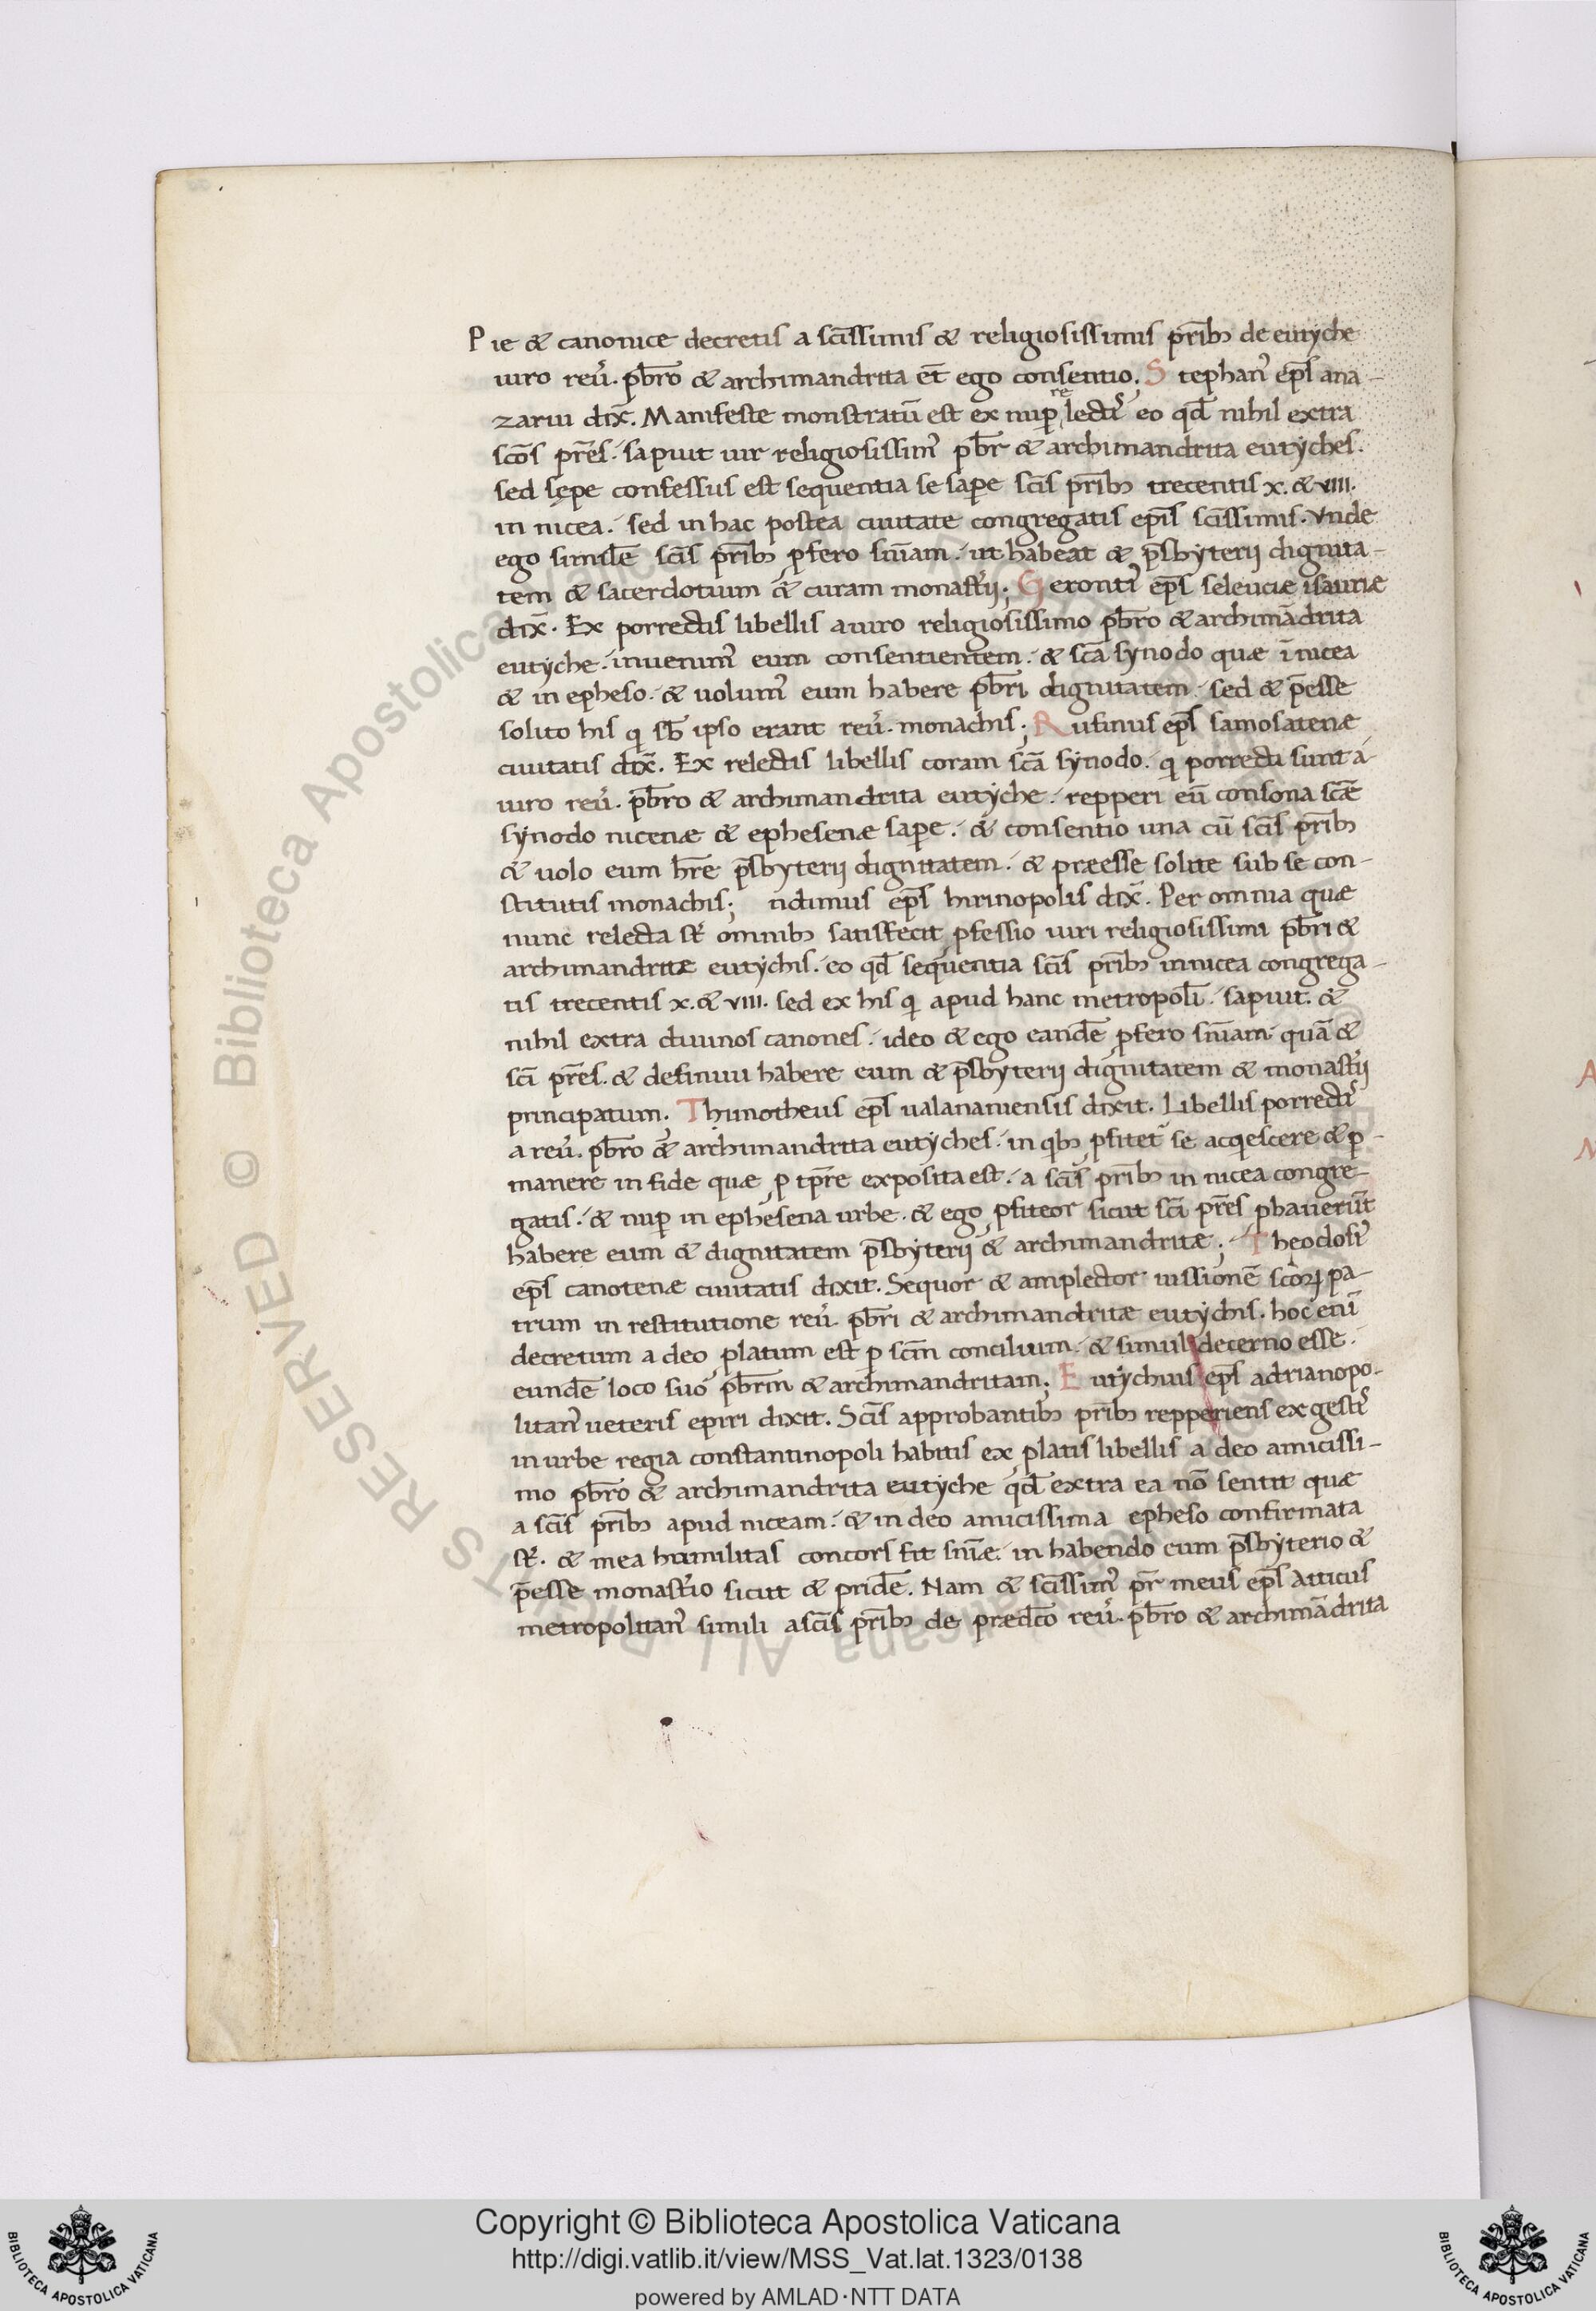 Pie & canonice decretis a scīssimis & religiosissimis prīb; de eutyche
uiro reuꝰ. pb̄ro & archimandrita et̄ ego consentio; Stephanꝰ ep̄s ana-
zarui dix̄. Manifeste monstratū est ex nuꝑ relectꝭ eo qd̄ nihil extra
scōs p̄res. sapuit uir religiosissimꝰ pb̄r & archimandrita eutyches.
sed sępe confessus est sequentia se sapere scīs prīb; trecentis x. & viii.
in nicea. sed in hac postea ciuitate congregatis ep̄is scīssimis. Vnde
ego similē scīs prīb; ꝓfero snīam. ut habeat & p̄sbyterii dignita-
tem & sacerdotium & curam monastꝰii; Gerontiꝰ ep̄s seleuciæ isauriæ
dix̄. Ex porrectis libellis a uiro religiosissimo pb̄ro & archimādrita
eutyche. inuenimꝰ eum consentientem. & scā synodo quæ ī nicea
& in epheso. & uolumꝰ eum habere pb̄ri dignitatem. sed & p̄esse
solito his q̇ sb̄ ipso erant reuꝰ. monachis; Rufinus ep̄s samosatenæ
ciuitatis dix̄. Ex relectis libellis coram scā synodo. q̇ porrecti sunt a
uiro reuꝰ. pb̄ro & archimandrita eutyche. repperi eū consona scǣ
synodo nicenæ & ephesenæ sapere. & consentio una cū scīs prīb;
& uolo eum hr̄e p̄sbyterii dignitatem. & præesse solite sub se con-
stitutis monachis; ndimus ep̄s hirinopolis dix̄. Per omnia quæ
nunc relecta st̄ omnib; satisfecit ꝓfessio uiri religiosissimi pb̄ri &
archimandritæ eutychis. eo qd̄ sequentia scīs prīb; in nicea congrega-
tis trecentis x. & viii. sed ex his q̇ apud hanc metropolī. sapuit. &
nihil extra diuinos canones. ideo & ego eandē ꝓfero snīam quā &
scī p̄res. & definiui habere eum & p̄sbyterii dignitatem & monastꝰii
principatum; Thimotheus ep̄s ualananiensis dixit. Libellis porrectꝭ
a reuꝰ. pb̄ro & archimandrita eutyches. in qb; ꝓfitet᷑ se acqescere & ꝑ-
manere in fide quæ ꝓ tp̄re exposita est. a scīs prīb; in nicea congre-
gatis. & nuꝑ in ephesena urbe. & ego ꝓfiteor sicut scī p̄res ꝓbauerūt
habere eum & dignitatem p̄sbyterii & archimandritæ; Theodosiꝰ
ep̄s canotenæ ciuitatis dixit. Sequor & amplector iussionē scōꝝ pa-
trum in restitutione reuꝰ pb̄ri & archimandritæ eutychis. hoc enī
decretum a deo ꝓlatum est ꝑ scm̄ concilium. & simul decerno esse.
eundē loco suo pb̄rm & archimandritam; Eutychius ep̄s adrianopo-
litanꝰ ueteris epiri dixit. Scīs approbantib; prīb; repperiens ex gestꝭ
in urbe regia constantinopoli habitis ex ꝓlatis libellis a deo amicissi-
mo pb̄ro & archimandrita eutyche qd̄ extra ea nō sentit quæ
a scīs prīb; apud niceam. & in deo amicissima epheso confirmata
st̄. & mea humilitas concors fit snīæ. in habendo eum p̄sbyterio &
p̄esse monastꝰio sicut & pridē. Nam & scīssimꝰ pr̄ meus ep̄s Atticus
metropolitanꝰ simili a scīs prīb; de prædc̄o reuꝰ. pb̄ro & archimādrita
Copyright © Biblioteca Apostolica Vaticana
http://digi.vatlib.it/view/MSS_Vat.lat.1323/0138
powered by AMLAD·NTT DATA